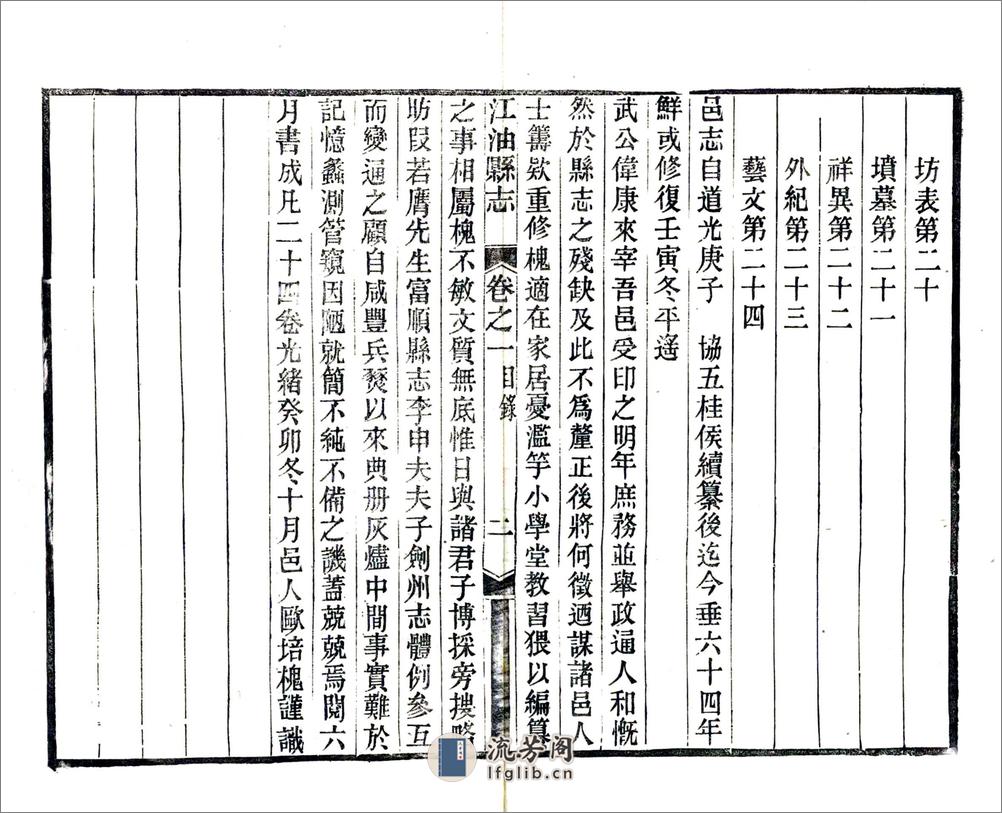 坊表第二十
墳墓第二十一
祥異第二十二
外紀第二十三
藝文第二十四
邑志自道光庚子 協五桂侯續纂後迄今垂六十四年
鮮或修復壬寅冬平遙
武公偉康來宰吾邑受印之明年庶務並舉政通人和慨
然於縣志之殘缺及此不爲釐正後將何徵迺謀諸邑人
士籌欵重修槐適在家居憂濫竽小學堂教習猥以編纂
江油縣志 卷之一 目錄 二
之事相屬槐不敏文質無底惟日與諸君子博採旁搜略
昉段若膺先生富順縣志李申夫夫子劍州志體例參互
而變通之顧自咸豐兵燹以來典册灰爐中間事實難於
記憶蠡測管窺因陋就簡不純不備之譏蓋兢兢焉閱六
月書成凡二十四卷光緒癸卯冬十月邑人歐培槐謹識
流芳阁
lfglib.cn